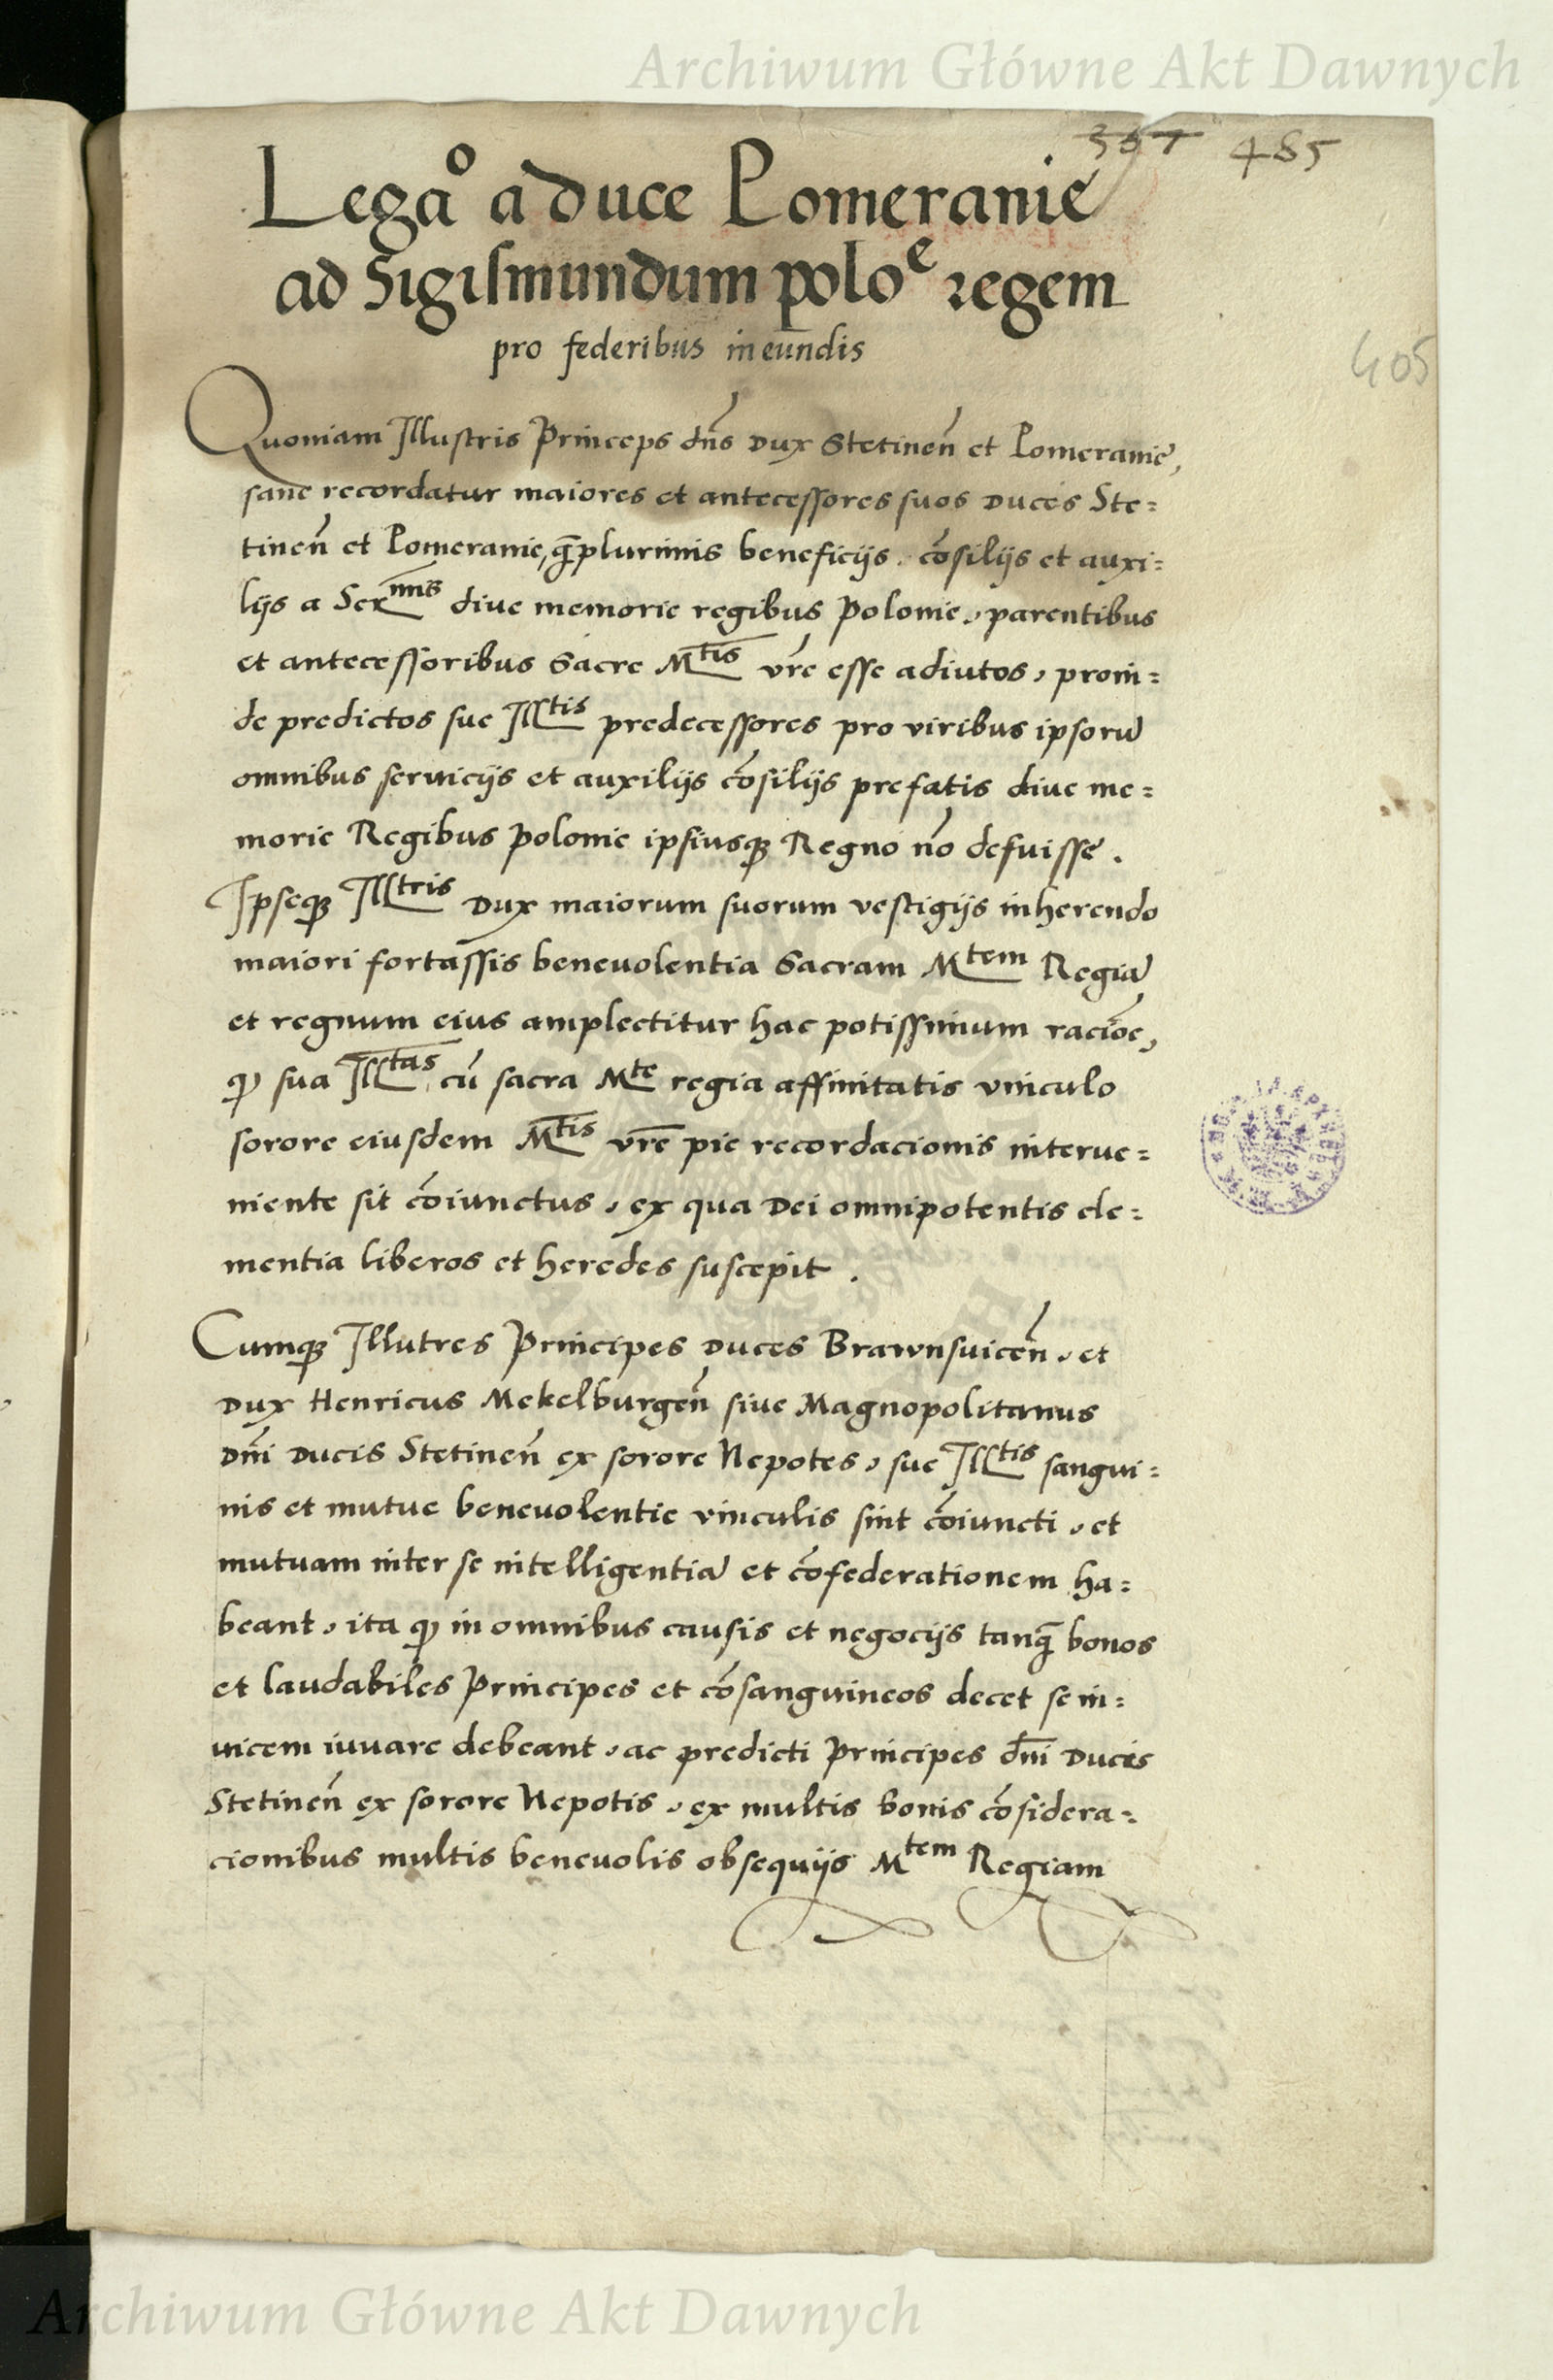 Archiwum Główne Akt Dawnych
367 485
Legaº a duce Pomeranie
ad Sigismundum poloᵉ regem
pro federibus ineundis
405
Quoniam Illustris Princeps dn̄s Dux Stetinen̄ et Pomeranie,
sane recordatur maiores et antecessores suos duces Ste=
tinen̄ et Pomeranie, q̄plurimis beneficijs. cōsilijs et auxi=
lijs a Serᵐⁱˢ dive memorie regibus Polonie, parentibus
et antecessoribus Sacre Mᵗⁱˢ vr̄e esse adiutos, proin=
de predictos sue Illᵗⁱˢ predecessores pro viribus ipsorū
omnibus seruicijs et auxilijs cōsilijs prefatis diue me=
morie Regibus Polonie ipsiusqꝫ Regno nō defuisse.
Ipseqꝫ Illᵗʳⁱˢ Dux maiorum suorum vestigijs inherendo
maiori fortassis beneuolentia Sacram Mᵗᵉᵐ Regiā
et regnum eius amplectitur hac potissimum raciōe,
ꝙ sua Illᵗᵃˢ cū sacra Mᵗᵉ regia affinitatis vinculo
sorore eiusdem Mᵗⁱˢ vr̄e pie recordacionis interue=
niente sit cōiunctus, ex qua Dei omnipotentis cle=
mentia liberos et heredes suscepit.
Cumqꝫ Illutres Principes Duces Brawnsuicen̄, et
Dux Henricus Mekelburgen̄ siue Magnopolitanus
Dn̄i Ducis Stetinen̄ ex sorore Nepotes, sue Illᵗⁱˢ sangui=
nis et mutue beneuolentie vinculis sint cōiuncti, et
mutuam inter se intelligentiā et cōfederationem ha=
beant, ita ꝙ in omnibus causis et negocijs tanq̄ bonos
et laudabiles Principes et cōsanguineos decet se in=
uicem iuuare debeant, ac predicti Principes dn̄i Ducis
Stetinen̄ ex sorore Nepotis, ex multis bonis cōsidera=
cionibus multis beneuolis obsequijs Mᵗᵉᵐ Regiam
Archiwum Główne Akt Dawnych